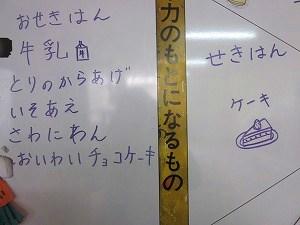 おせきはん
牛乳
とりのからあげ
いそあえ
さわにわん
おいわいチョコケーキ
力のもとになるもの
せきはん
ケーキ